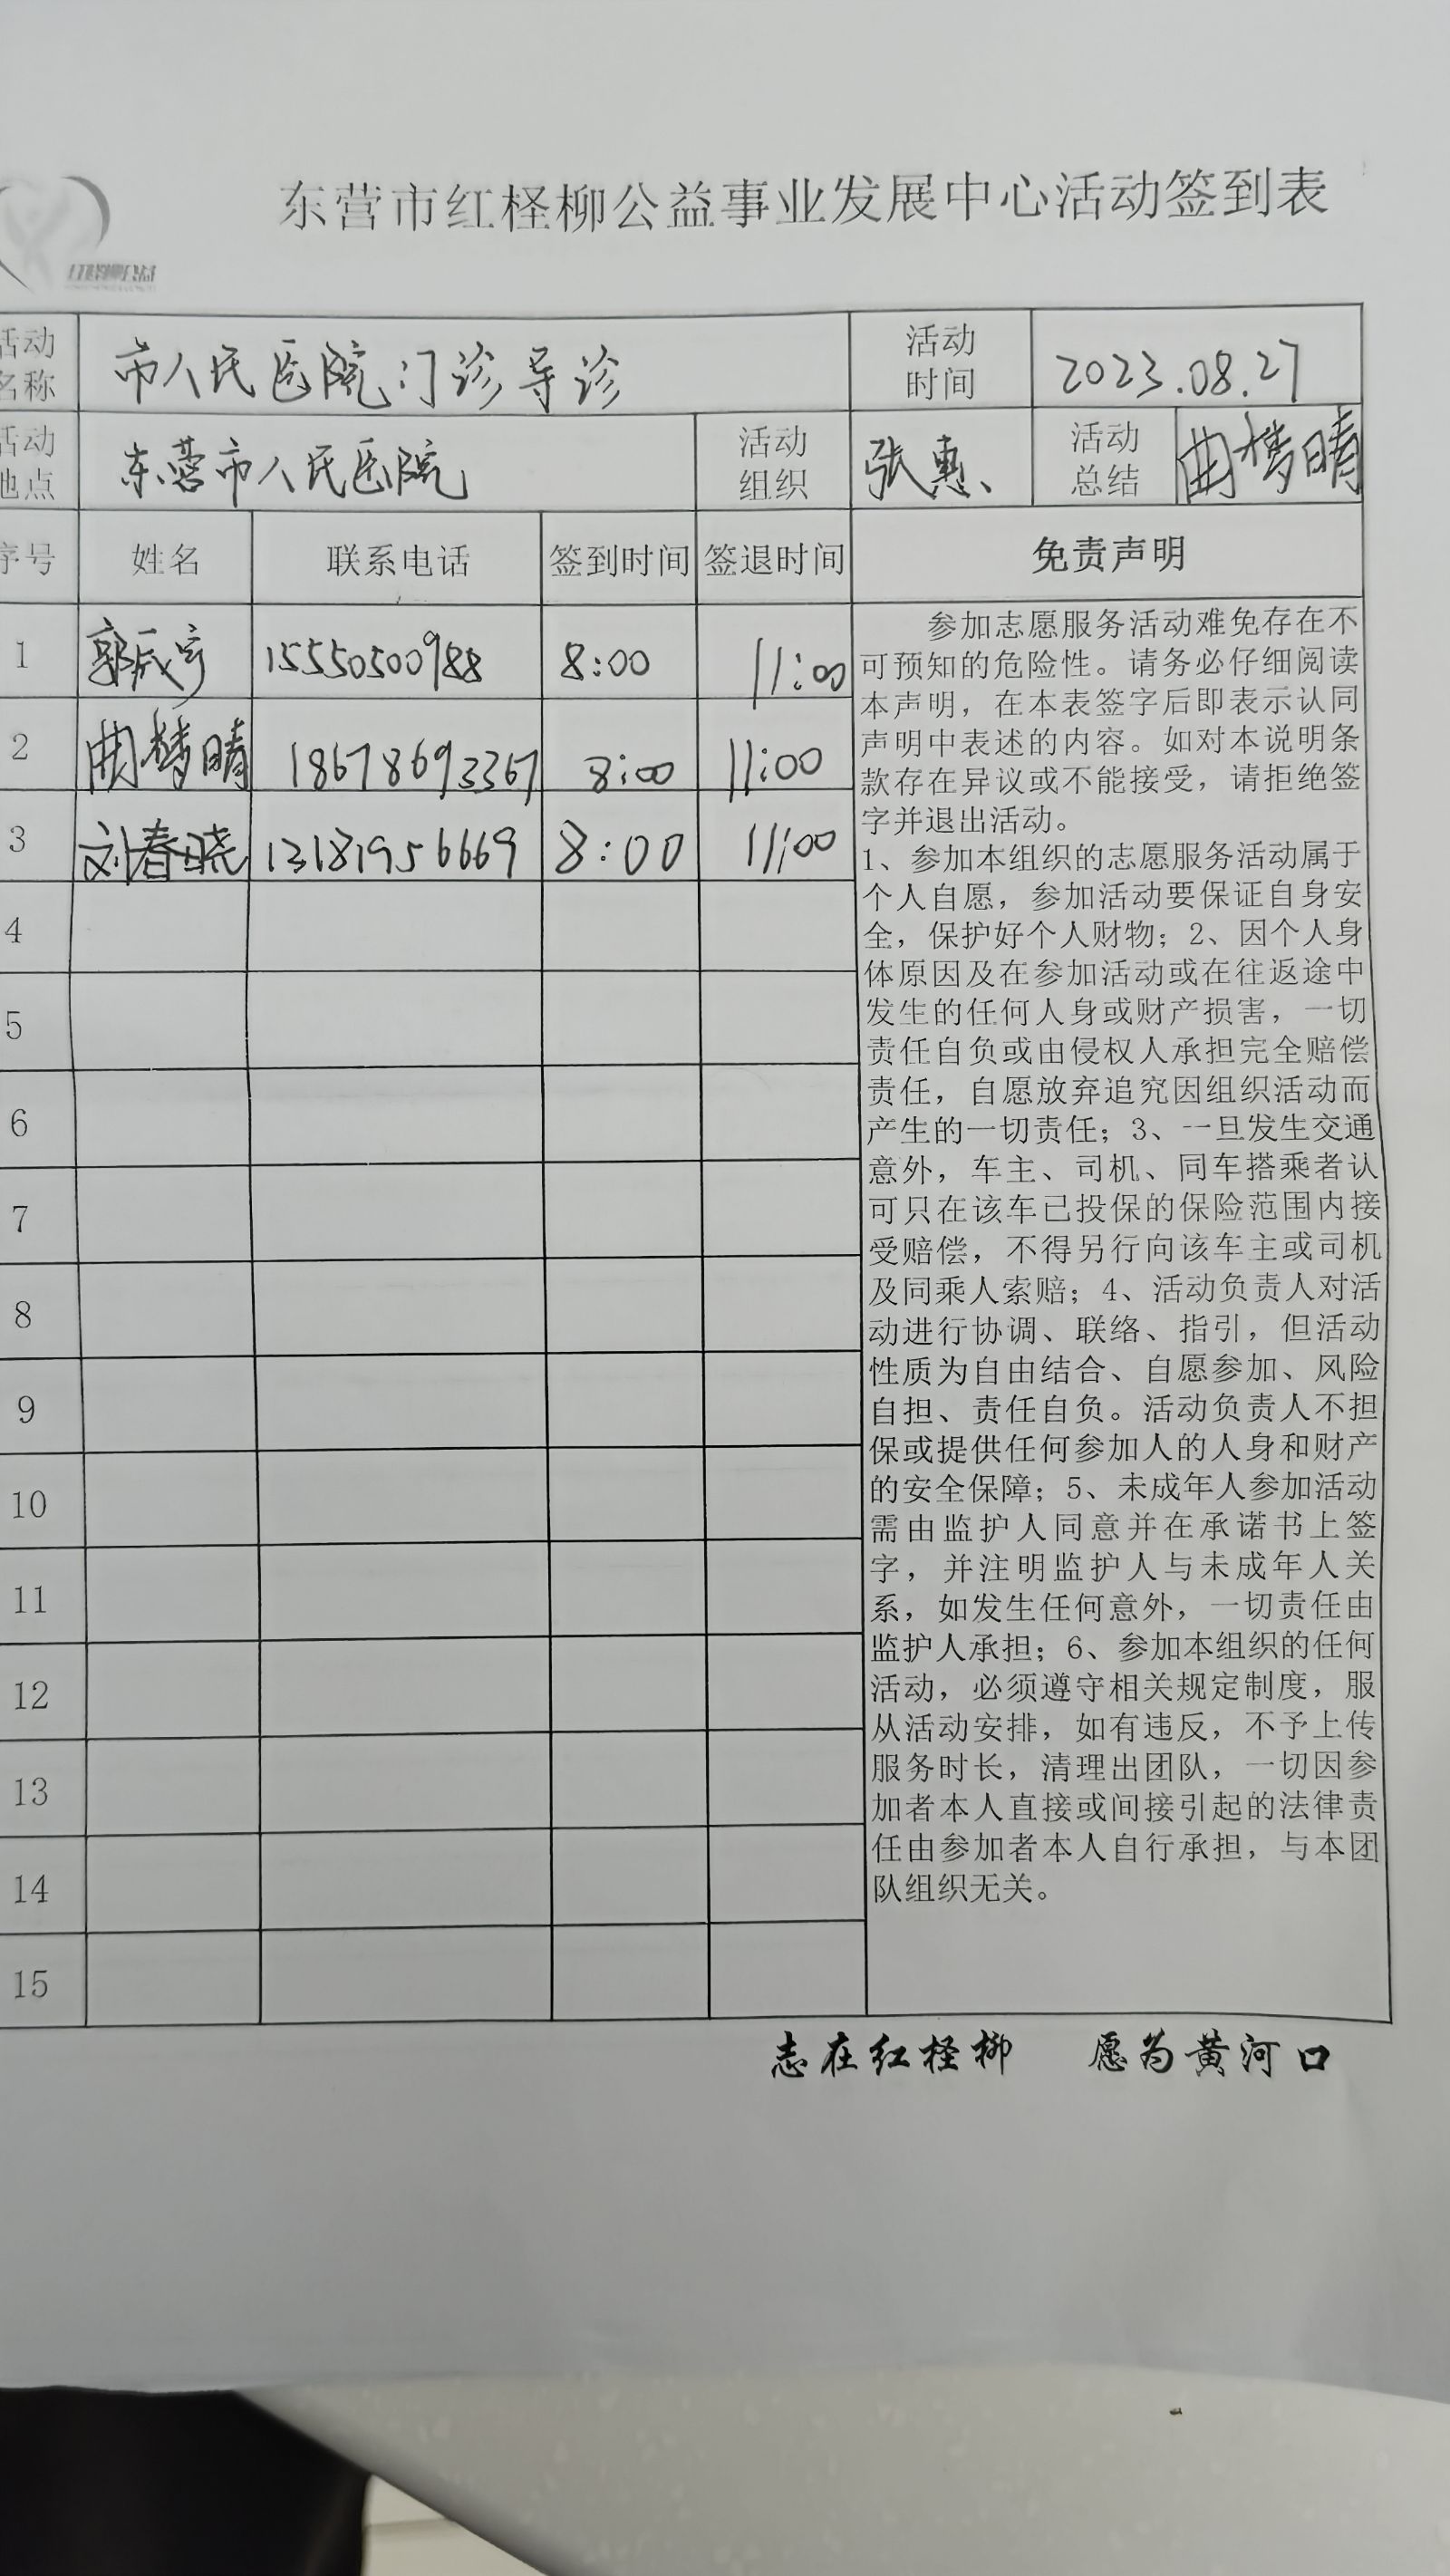 东营市红柽柳公益事业发展中心活动签到表
红柽柳公益
活动名称 市人民医院门诊导诊 活动时间 2023.08.27
活动地点 东营市人民医院 活动组织 张惠、 活动总结 曲梦晴
序号 姓名 联系电话 签到时间 签退时间 免责声明
1 郭成宇 15550500988 8:00 11:00
2 曲梦晴 18678693367 8:00 11:00
3 刘春晓 13181956669 8:00 11:00
4
5
6
7
8
9
10
11
12
13
14
15
参加志愿服务活动难免存在不
可预知的危险性。请务必仔细阅读
本声明，在本表签字后即表示认同
声明中表述的内容。如对本说明条
款存在异议或不能接受，请拒绝签
字并退出活动。
1、参加本组织的志愿服务活动属于
个人自愿，参加活动要保证自身安
全，保护好个人财物；2、因个人身
体原因及在参加活动或在往返途中
发生的任何人身或财产损害，一切
责任自负或由侵权人承担完全赔偿
责任，自愿放弃追究因组织活动而
产生的一切责任；3、一旦发生交通
意外，车主、司机、同车搭乘者认
可只在该车已投保的保险范围内接
受赔偿，不得另行向该车主或司机
及同乘人索赔；4、活动负责人对活
动进行协调、联络、指引，但活动
性质为自由结合、自愿参加、风险
自担、责任自负。活动负责人不担
保或提供任何参加人的人身和财产
的安全保障；5、未成年人参加活动
需由监护人同意并在承诺书上签
字，并注明监护人与未成年人关
系，如发生任何意外，一切责任由
监护人承担；6、参加本组织的任何
活动，必须遵守相关规定制度，服
从活动安排，如有违反，不予上传
服务时长，清理出团队，一切因参
加者本人直接或间接引起的法律责
任由参加者本人自行承担，与本团
队组织无关。
志在红柽柳 愿为黄河口